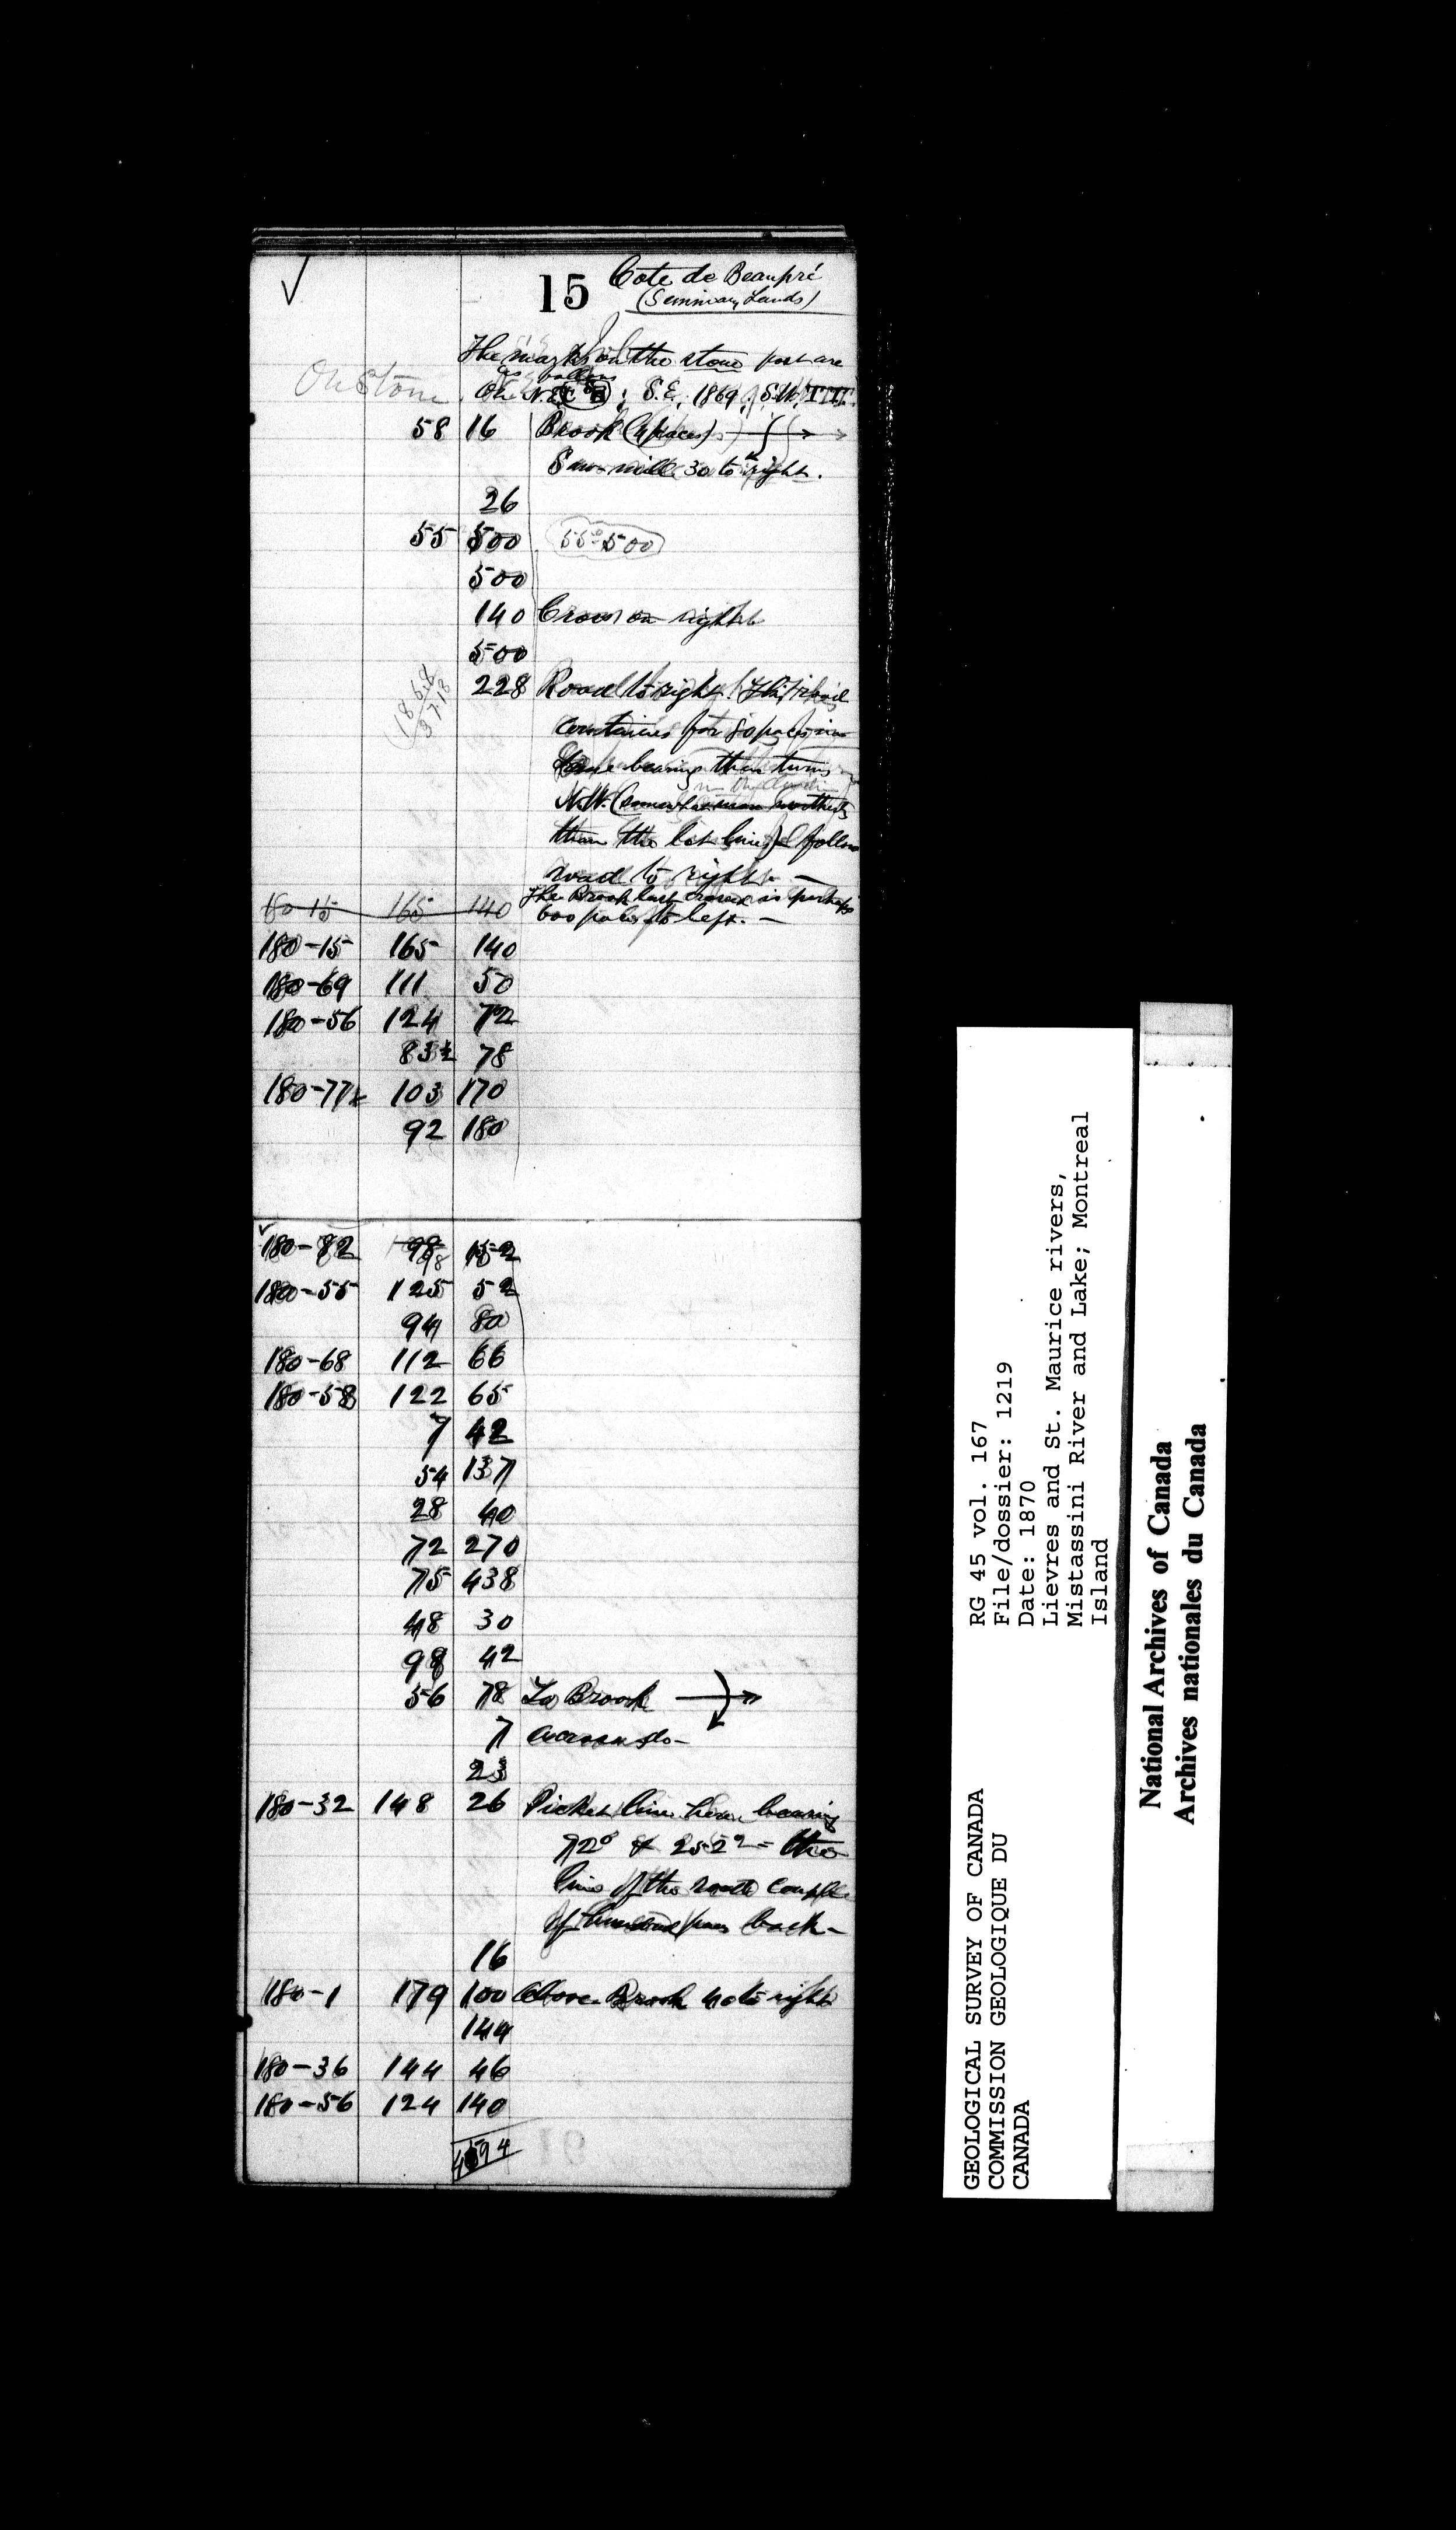 15 Cote de Beaupré
(Seminary Lands)
The marks on the stone post are
as follows
On Stone
On N.E. ; S.E. 1869, S.W. III.
58 16 Brook (4 paces)
Saw-mill 30 to right.
26
55 500 55° 500
500
140 Cross on right
500
228 Road to right. (This road
continues for 80 paces in
same bearing then turns
N.W. (somewhat more northerly
than the lot line) I follow
road to right. —
The Brook last crossed is perhaps
600 paces to left. —
180-15 165 140
180-15 165 140
180-69 111 50
180-56 124 72
83½ 78
180-77 103 170
92 180
180-82 98 152
98
180-55 125 52
94 80
180-68 112 66
180-58 122 65
7 42
54 137
28 40
72 270
75 438
48 30
98 42
56 78 To Brook
7 across do-
23
180-32 148 26 Picket line here bearing
72° & 252° = the
line of the route couple
of hundred paces back-
16
180-1 179 100 Above Brook 40 to right
144
180-36 144 46
180-56 124 140
4594
RG 45 vol. 167
File/dossier: 1219
Date: 1870
Lievres and St. Maurice rivers,
Mistassini River and Lake; Montreal
Island
GEOLOGICAL SURVEY OF CANADA
COMMISSION GEOLOGIQUE DU
CANADA
National Archives of Canada
Archives nationales du Canada